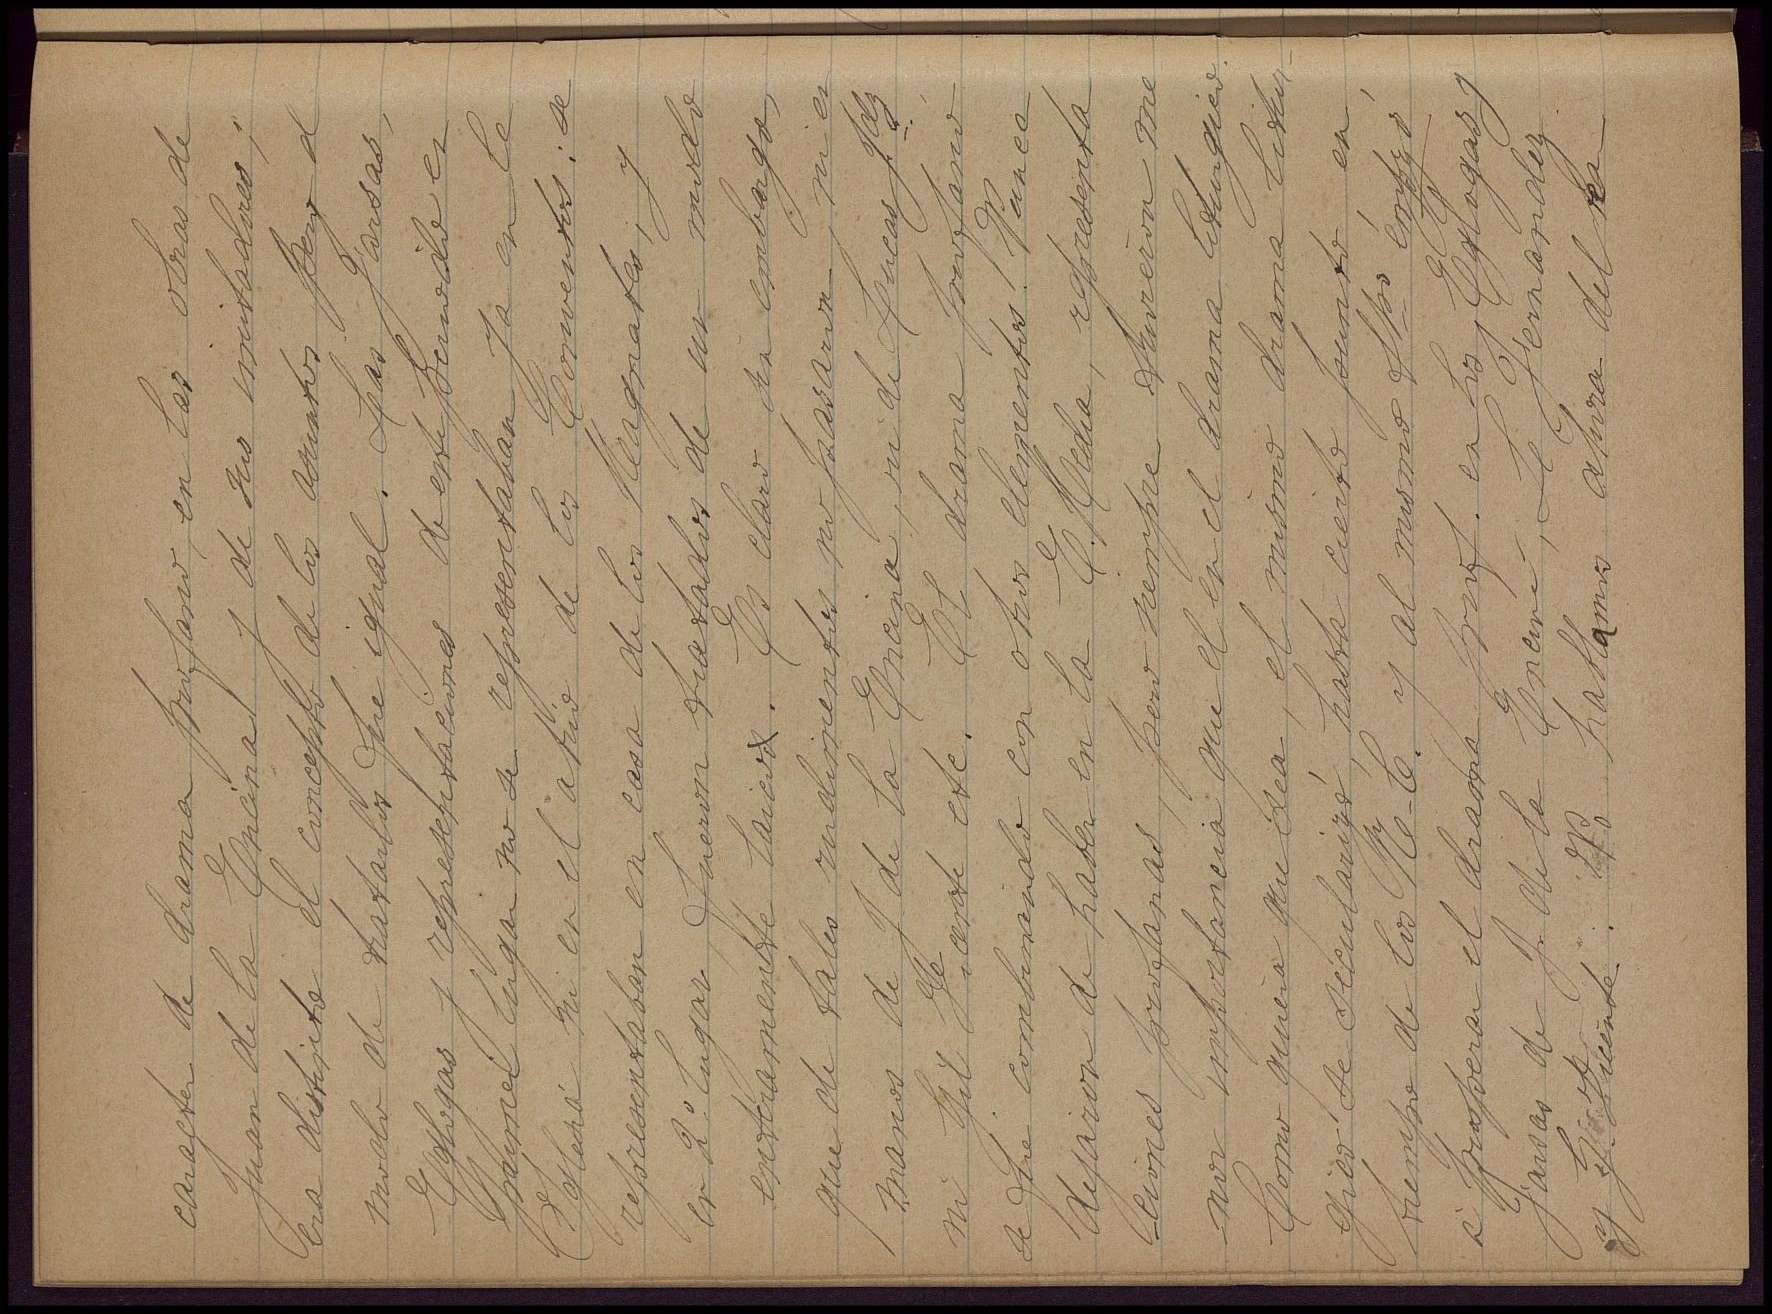 caracter de drama profano, en las obras de
Juan de la Encina y de sus imitadores;
era distinto el concepto de los asuntos pero el
modo de tratarlos fue igual. Las Farsas,
Eglogas y representaciones de este periodo en
primer lugar no se representaban ya en la
Iglesia ni en el atrio de los Conventos: se
representaban en casa de los Magnates, y
en 2º lugar fueron tratados de un modo
enteramente laico. Es claro sin embargo,
que de tales rudimentos no pasaron, ni en
manos de J de la Encina, ni de Lucas Fdz
ni Gil Vicente etc. El drama profano
se fue combinando con otros elementos. Nunca
dejaron de haber en la E. Media, representa
ciones profanas, pero siempre tuvieron me
nor importancia que el en el drama liturgico.
Como quiera que sea, el mismo drama litur-
gico se secularizó hasta cierto punto en
tiempo de los RR. CC. y al mismo tpo empezó
a prosperar el drama prof. en las Eglogas y
farsas de J. de la Encina, L Fernandez
y Gil Vicente. Hallamos ahora del